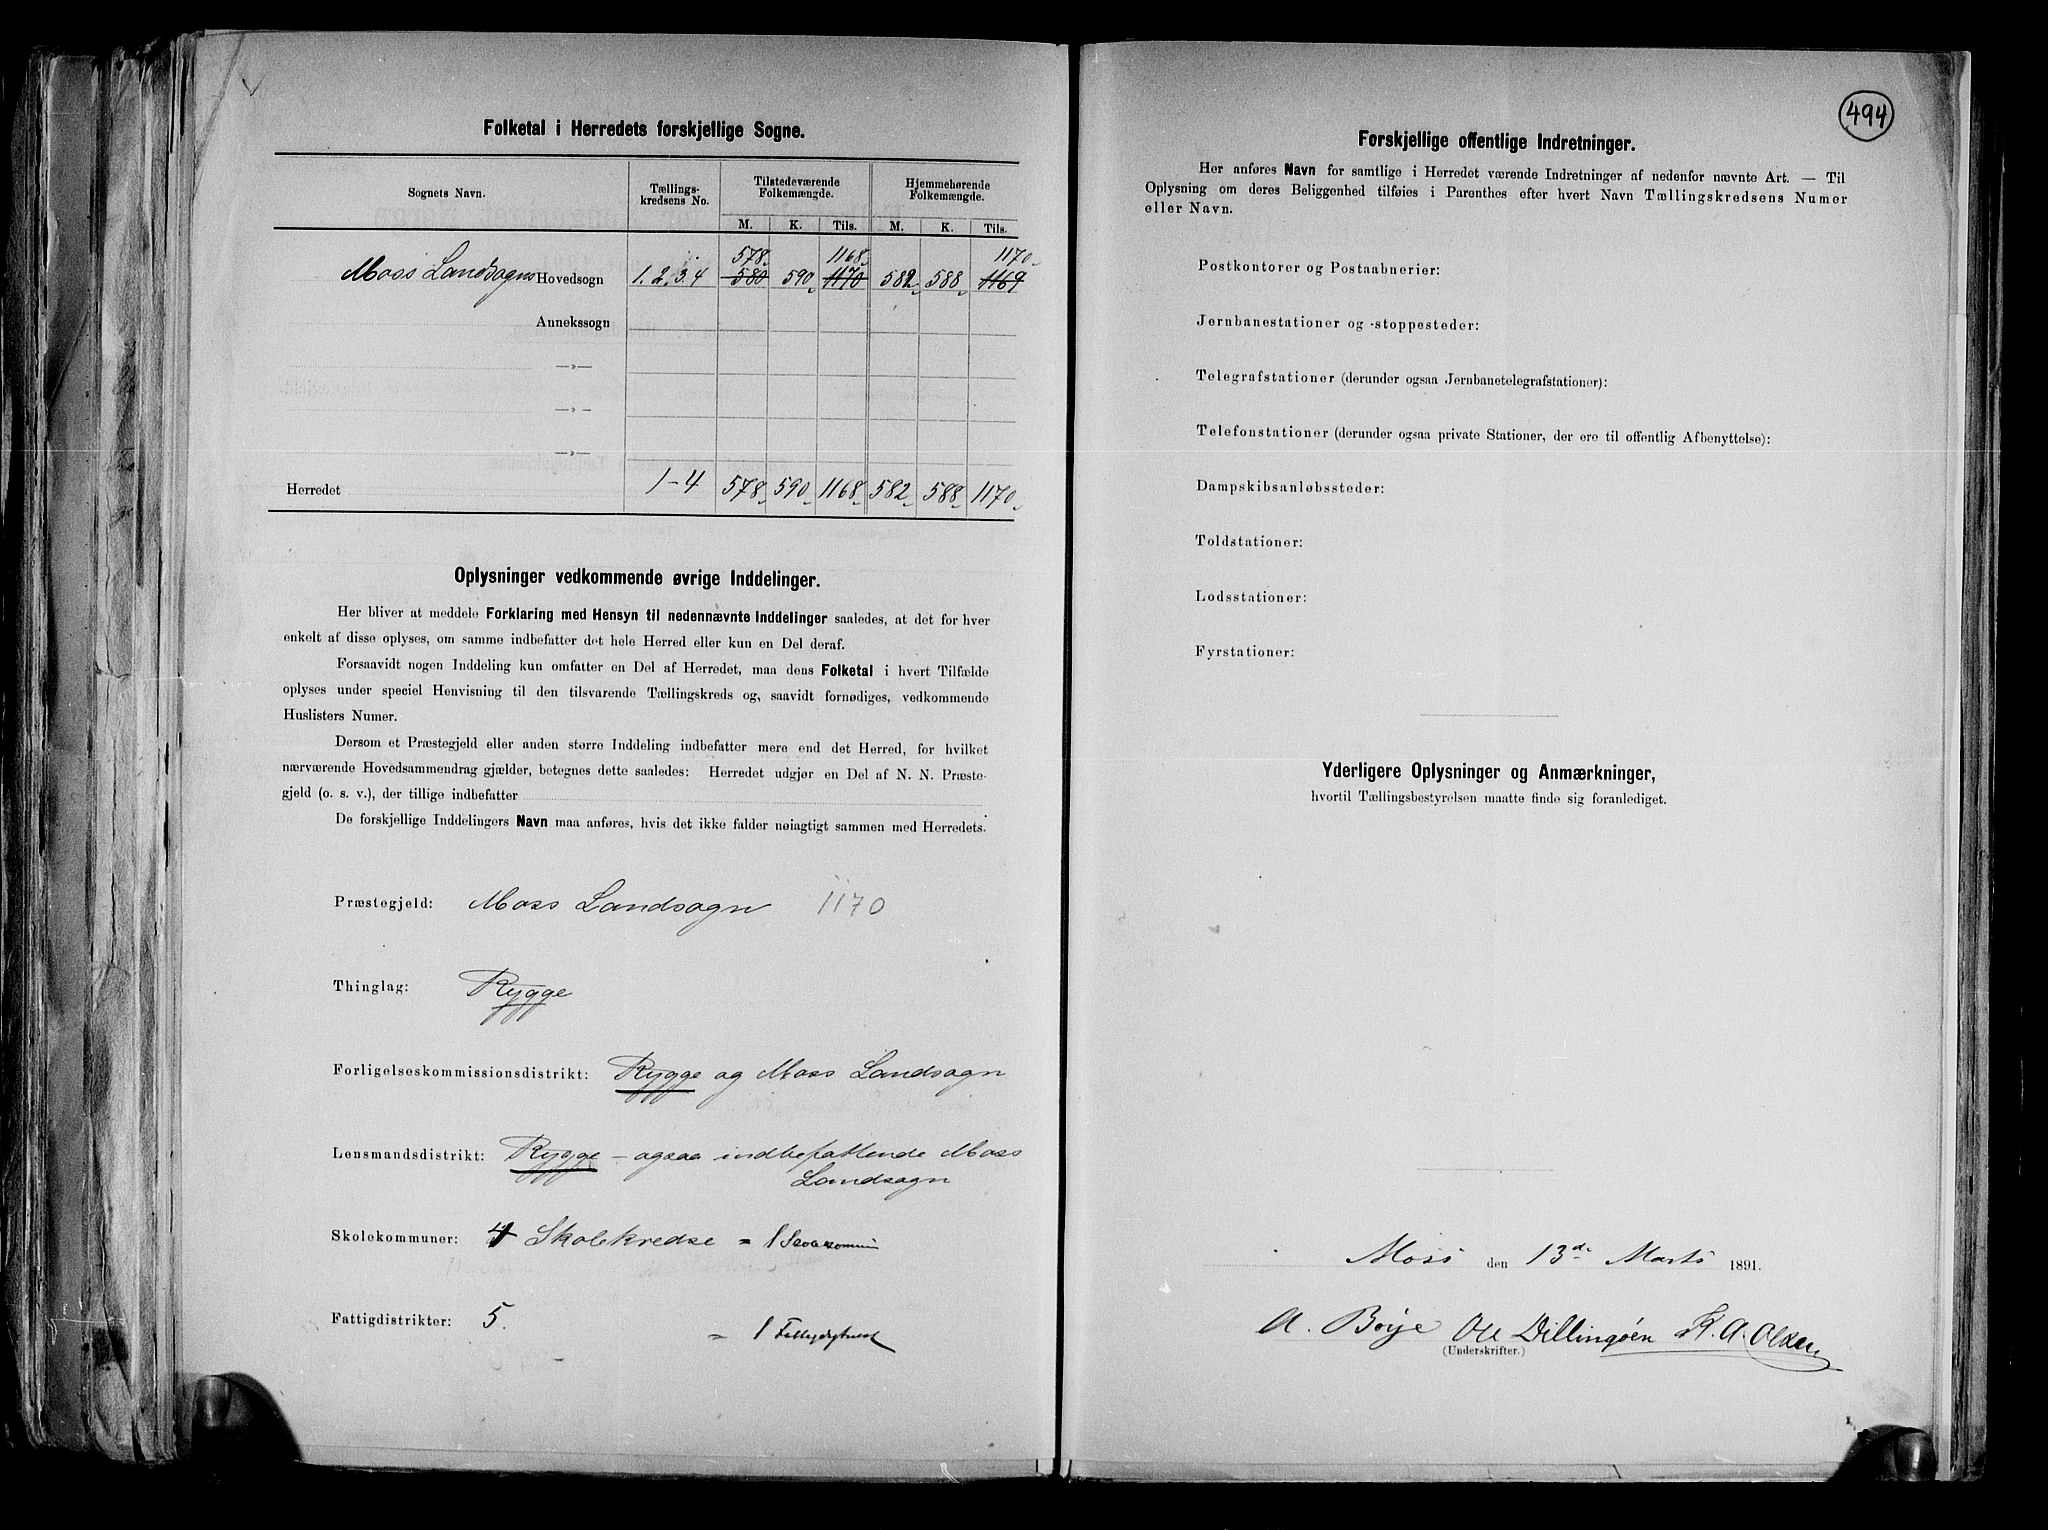 Folketal i Herredets forskjellige Sogne.
Sognets Navn. Tællings-kredsens No. Tilstedeværende Folkemængde. Hjemmehørende Folkemængde.
M. K. Tils. M. K. Tils.
578 1168 1170
Moss Landsogns Hovedsogn 1. 2. 3. 4 580 590 1170 582 588 1169
Annekssogn
—„—
—„—
—„—
Herredet 1-4 578 590 1168 582 588 1170
Oplysninger vedkommende øvrige Inddelinger.
Her bliver at meddele Forklaring med Hensyn til nedennævnte Inddelinger saaledes, at det for hver
enkelt af disse oplyses, om samme indbefatter det hele Herred eller kun en Del deraf.
Forsaavidt nogen Inddeling kun omfatter en Del af Herredet, maa dens Folketal i hvert Tilfælde
oplyses under speciel Henvisning til den tilsvarende Tællingskreds og, saavidt fornødiges, vedkommende
Huslisters Numer.
Dersom et Præstegjeld eller anden større Inddeling indbefatter mere end det Herred, for hvilket
nærværende Hovedsammendrag gjælder, betegnes dette saaledes: Herredet udgjør en Del af N. N. Præste-
gjeld (o. s. v.), der tillige indbefatter
De forskjellige Inddelingers Navn maa anføres, hvis det ikke falder nøiagtigt sammen med Herredets.
Præstegjeld: Moss Landsogn 1170
Thinglag: Rygge
Forligelseskommissionsdistrikt: Rygge og Moss Landsogn
Lensmandsdistrikt: Rygge – ogsaa indbefattende Moss
Landsogn
Skolekommuner: 4 Skolekredse = 1 Skolekommun
Fattigdistrikter: 5. = 1
494
Forskjellige offentlige Indretninger.
Her anføres Navn for samtlige i Herredet værende Indretninger af nedenfor nævnte Art. — Til
Oplysning om deres Beliggenhed tilføies i Parenthes efter hvert Navn Tællingskredsens Numer
eller Navn.
Postkontorer og Postaabnerier:
Jernbanestationer og -stoppesteder:
Telegrafstationer (derunder ogsaa Jernbanetelegrafstationer):
Telefonstationer (derunder ogsaa private Stationer, der ere til offentlig Afbenyttelse):
Dampskibsanløbssteder:
Toldstationer:
Lodsstationer:
Fyrstationer:
Yderligere Oplysninger og Anmærkninger,
hvortil Tællingsbestyrelsen maatte finde sig foranlediget.
Moss den 13de Marts 1891.
A. Boije Ole Dillingøen K. A. Olsen
(Underskrifter.)